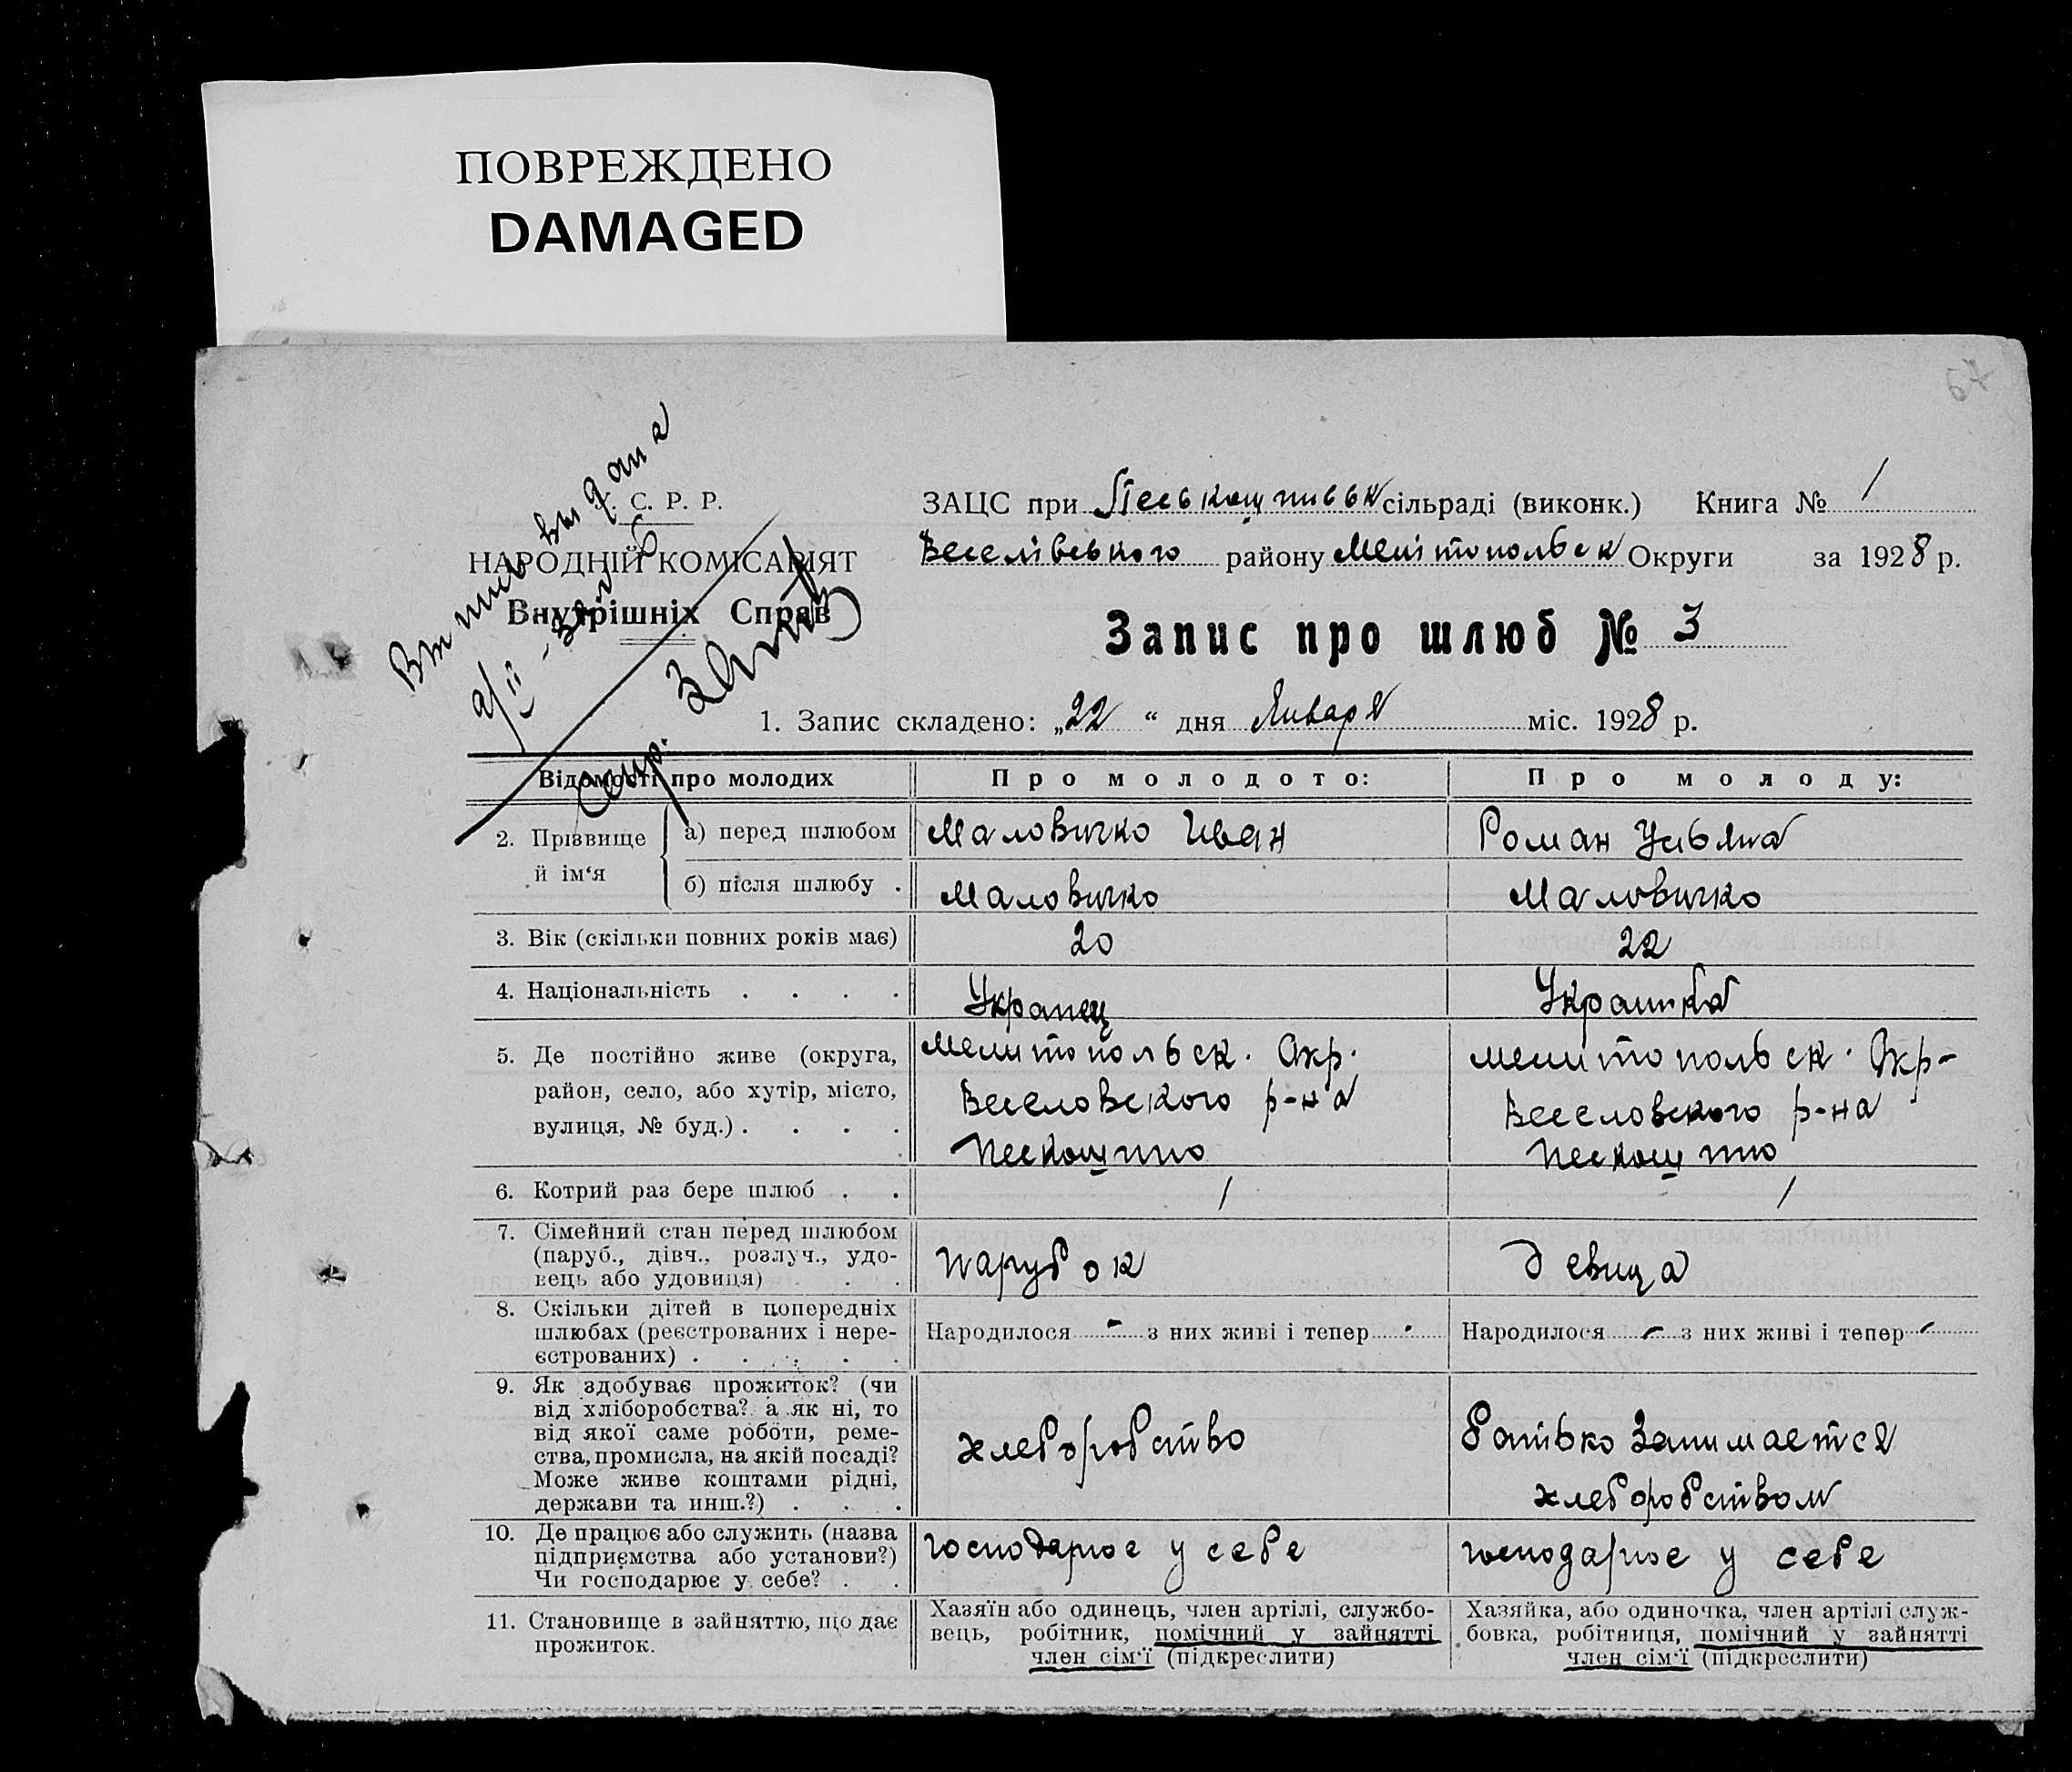 ПОВРЕЖДЕНО
DAMAGED
67
Выпись выдана
У. С. Р. Р.
НАРОДНІЙ КОМІСАРІЯТ
Внутрішніх Справ
ЗАЦС при Песькошпивськ сільраді (виконк.) Книга № 1
Веселівського району Мелітопольск Округи за 1928 р.
Запис про шлюб № 3
1. Запис складено: „22“ дня Января міс. 1928 р.
Відомості про молодих
Про молодото:
Про молоду:
2. Прізвище й ім‘я
а) перед шлюбом
Маловичко Иван
Роман Ульяна
б) після шлюбу .
Маловичко
Маловичко
3. Вік (скільки повних років має)
20
22
4. Національність . . . .
Украпец
Украинка
5. Де постійно живе (округа,
район, село, або хутір, місто,
вулиця, № буд.) . . . .
мелитопольск. Окр.
Веселовского р-на
Пескошпно
мелитопольск. Окр-
Веселовского р-на
Пескошпно
6. Котрий раз бере шлюб . .
1
1
7. Сімейний стан перед шлюбом
(паруб., дівч., розлуч., удо-
вець або удовиця) . . .
парубок
девица
8. Скільки дітей в попередніх
шлюбах (реєстрованих і нере-
єстрованих) . . . . .
Народилося - з них живі і тепер -
Народилося - з них живі і тепер -
9. Як здобуває прожиток? (чи
від хліборобства? а як ні, то
від якої саме роботи, реме-
ства, промисла, на якій посаді?
Може живе коштами рідні,
держави та инш.?) . . .
хлеборобство
батько Занимается
хлеборобством
10. Де працює або служить (назва
підприємства або установи?)
Чи господарює у себе? . .
господарюе у себе
господарюе у себе
11. Становище в зайняттю, що дає
прожиток.
Хазяїн або одинець, член артілі, службо-
вець, робітник, помічний у зайнятті
член сім‘ї (підкреслити)
Хазяйка, або одиночка, член артілі служ-
бовка, робітниця, помічний у зайнятті
член сім‘ї (підкреслити)